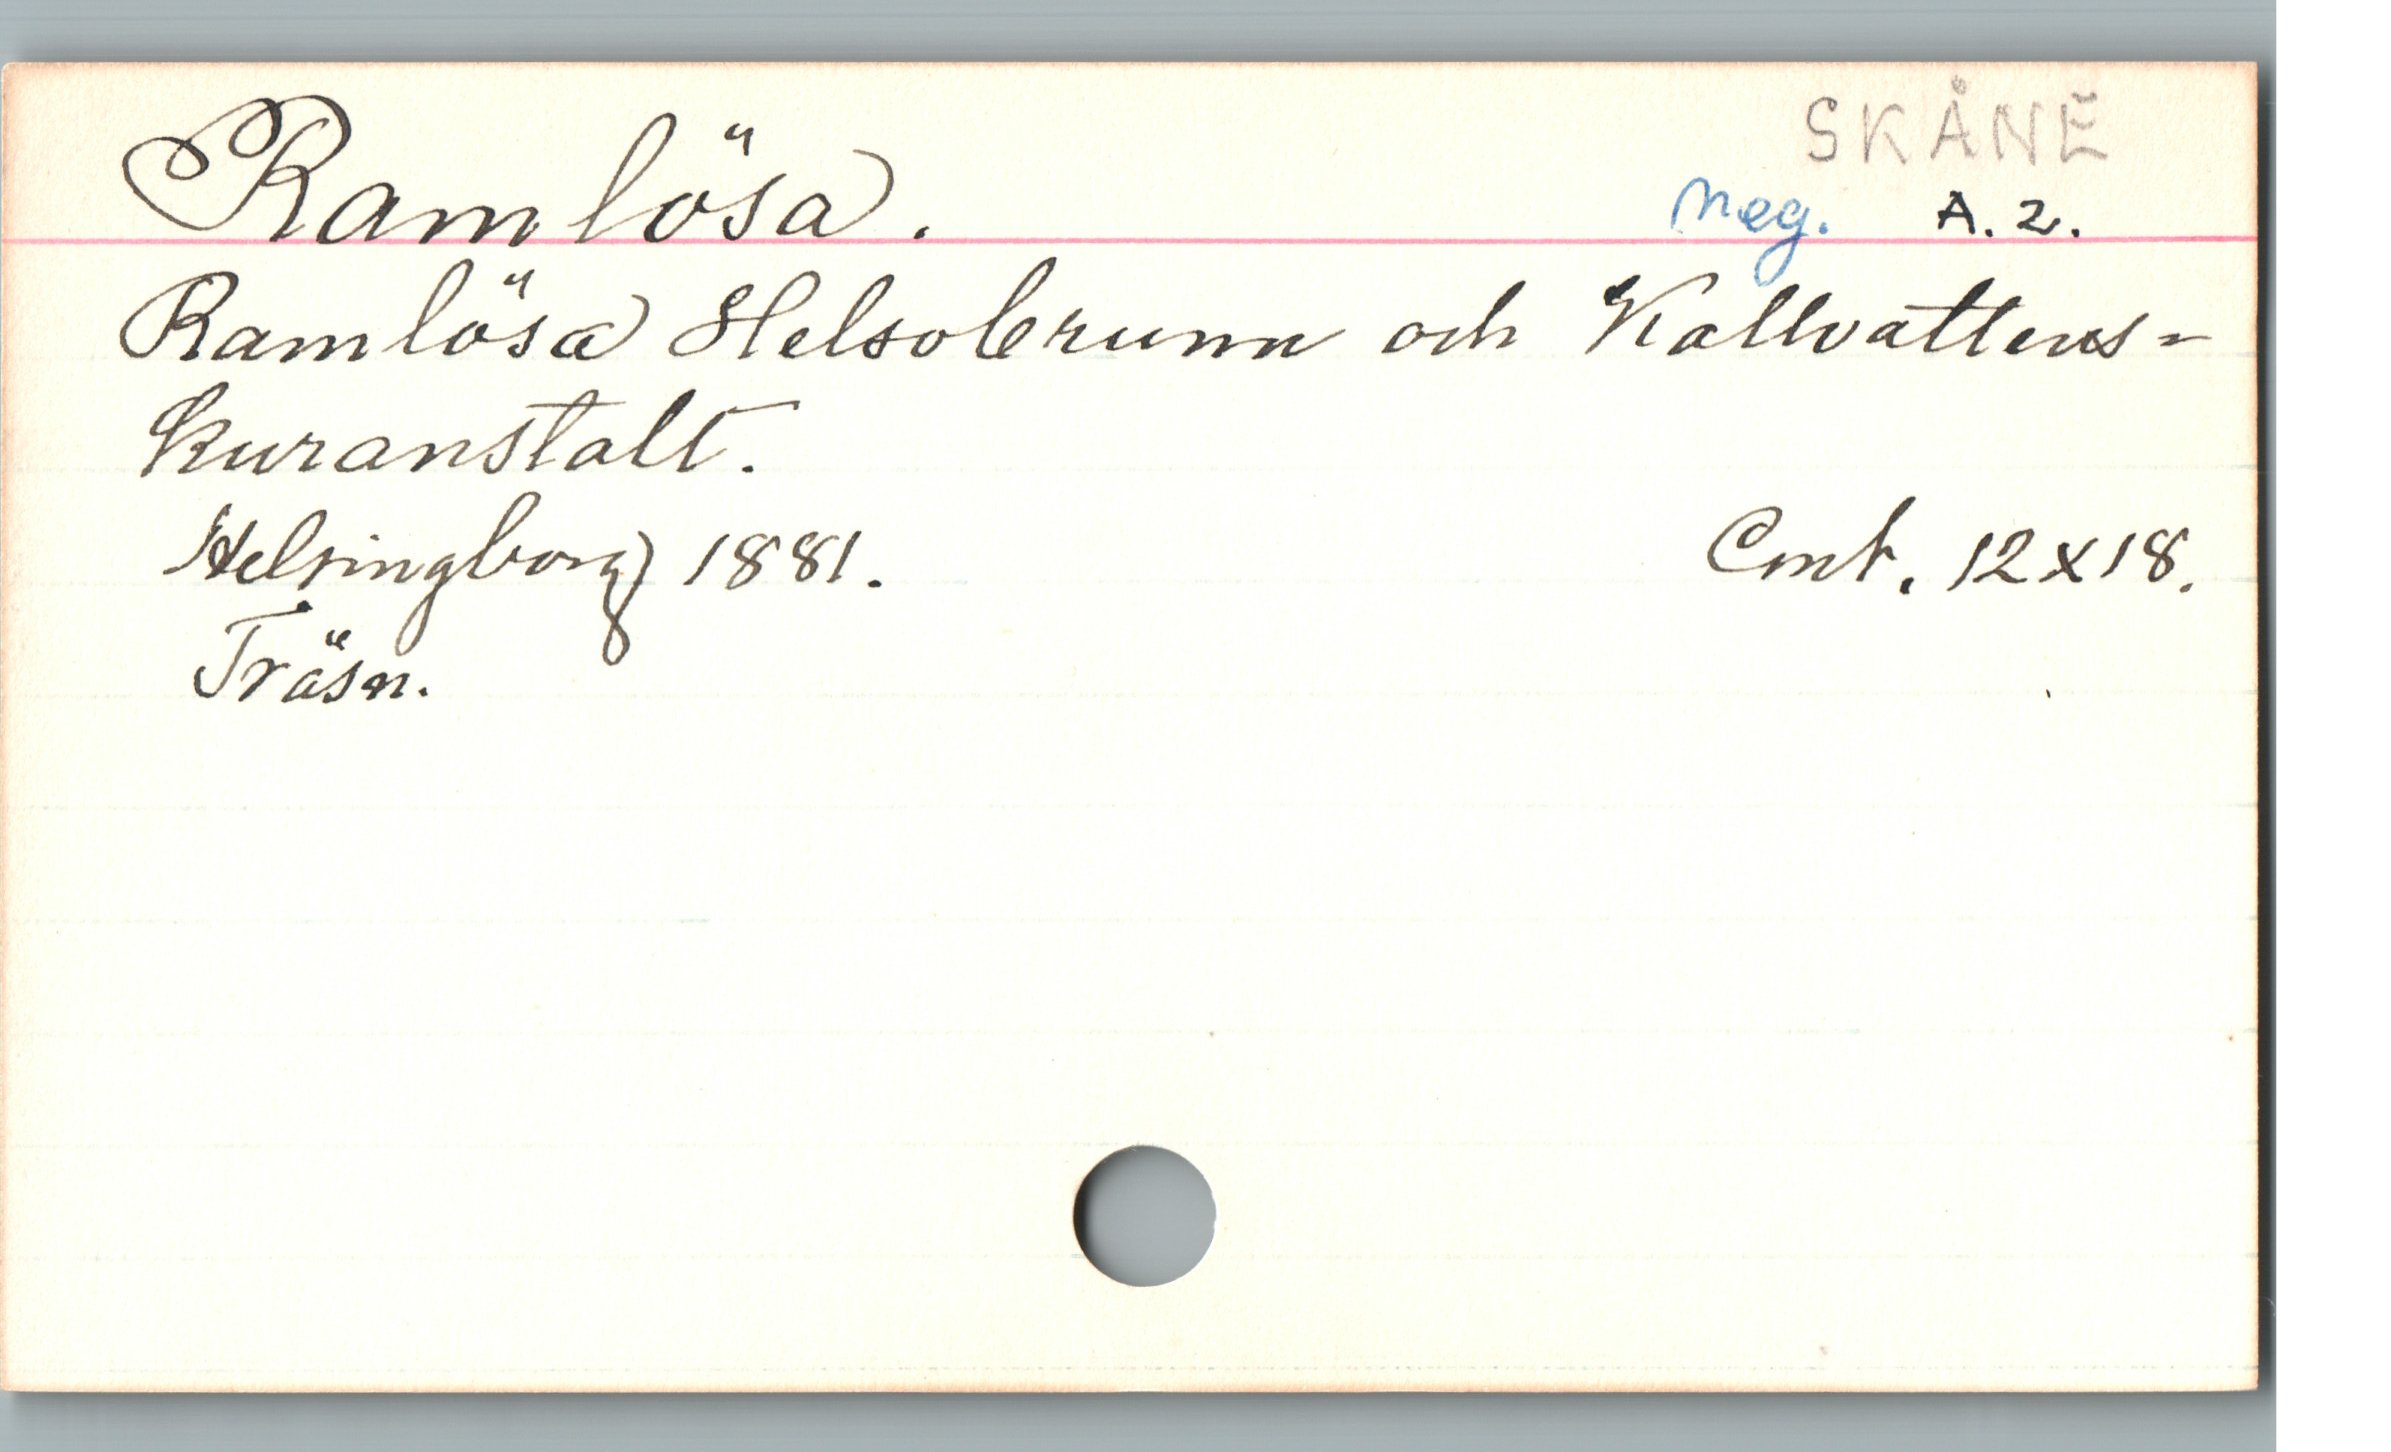 SKÅNE
Ramlösa. neg. A. 2.
Ramlösa Helsobrunn och Kallvattens-
kuranstalt.
Helsingborg 1881. Cmt. 12x18.
Träsn.